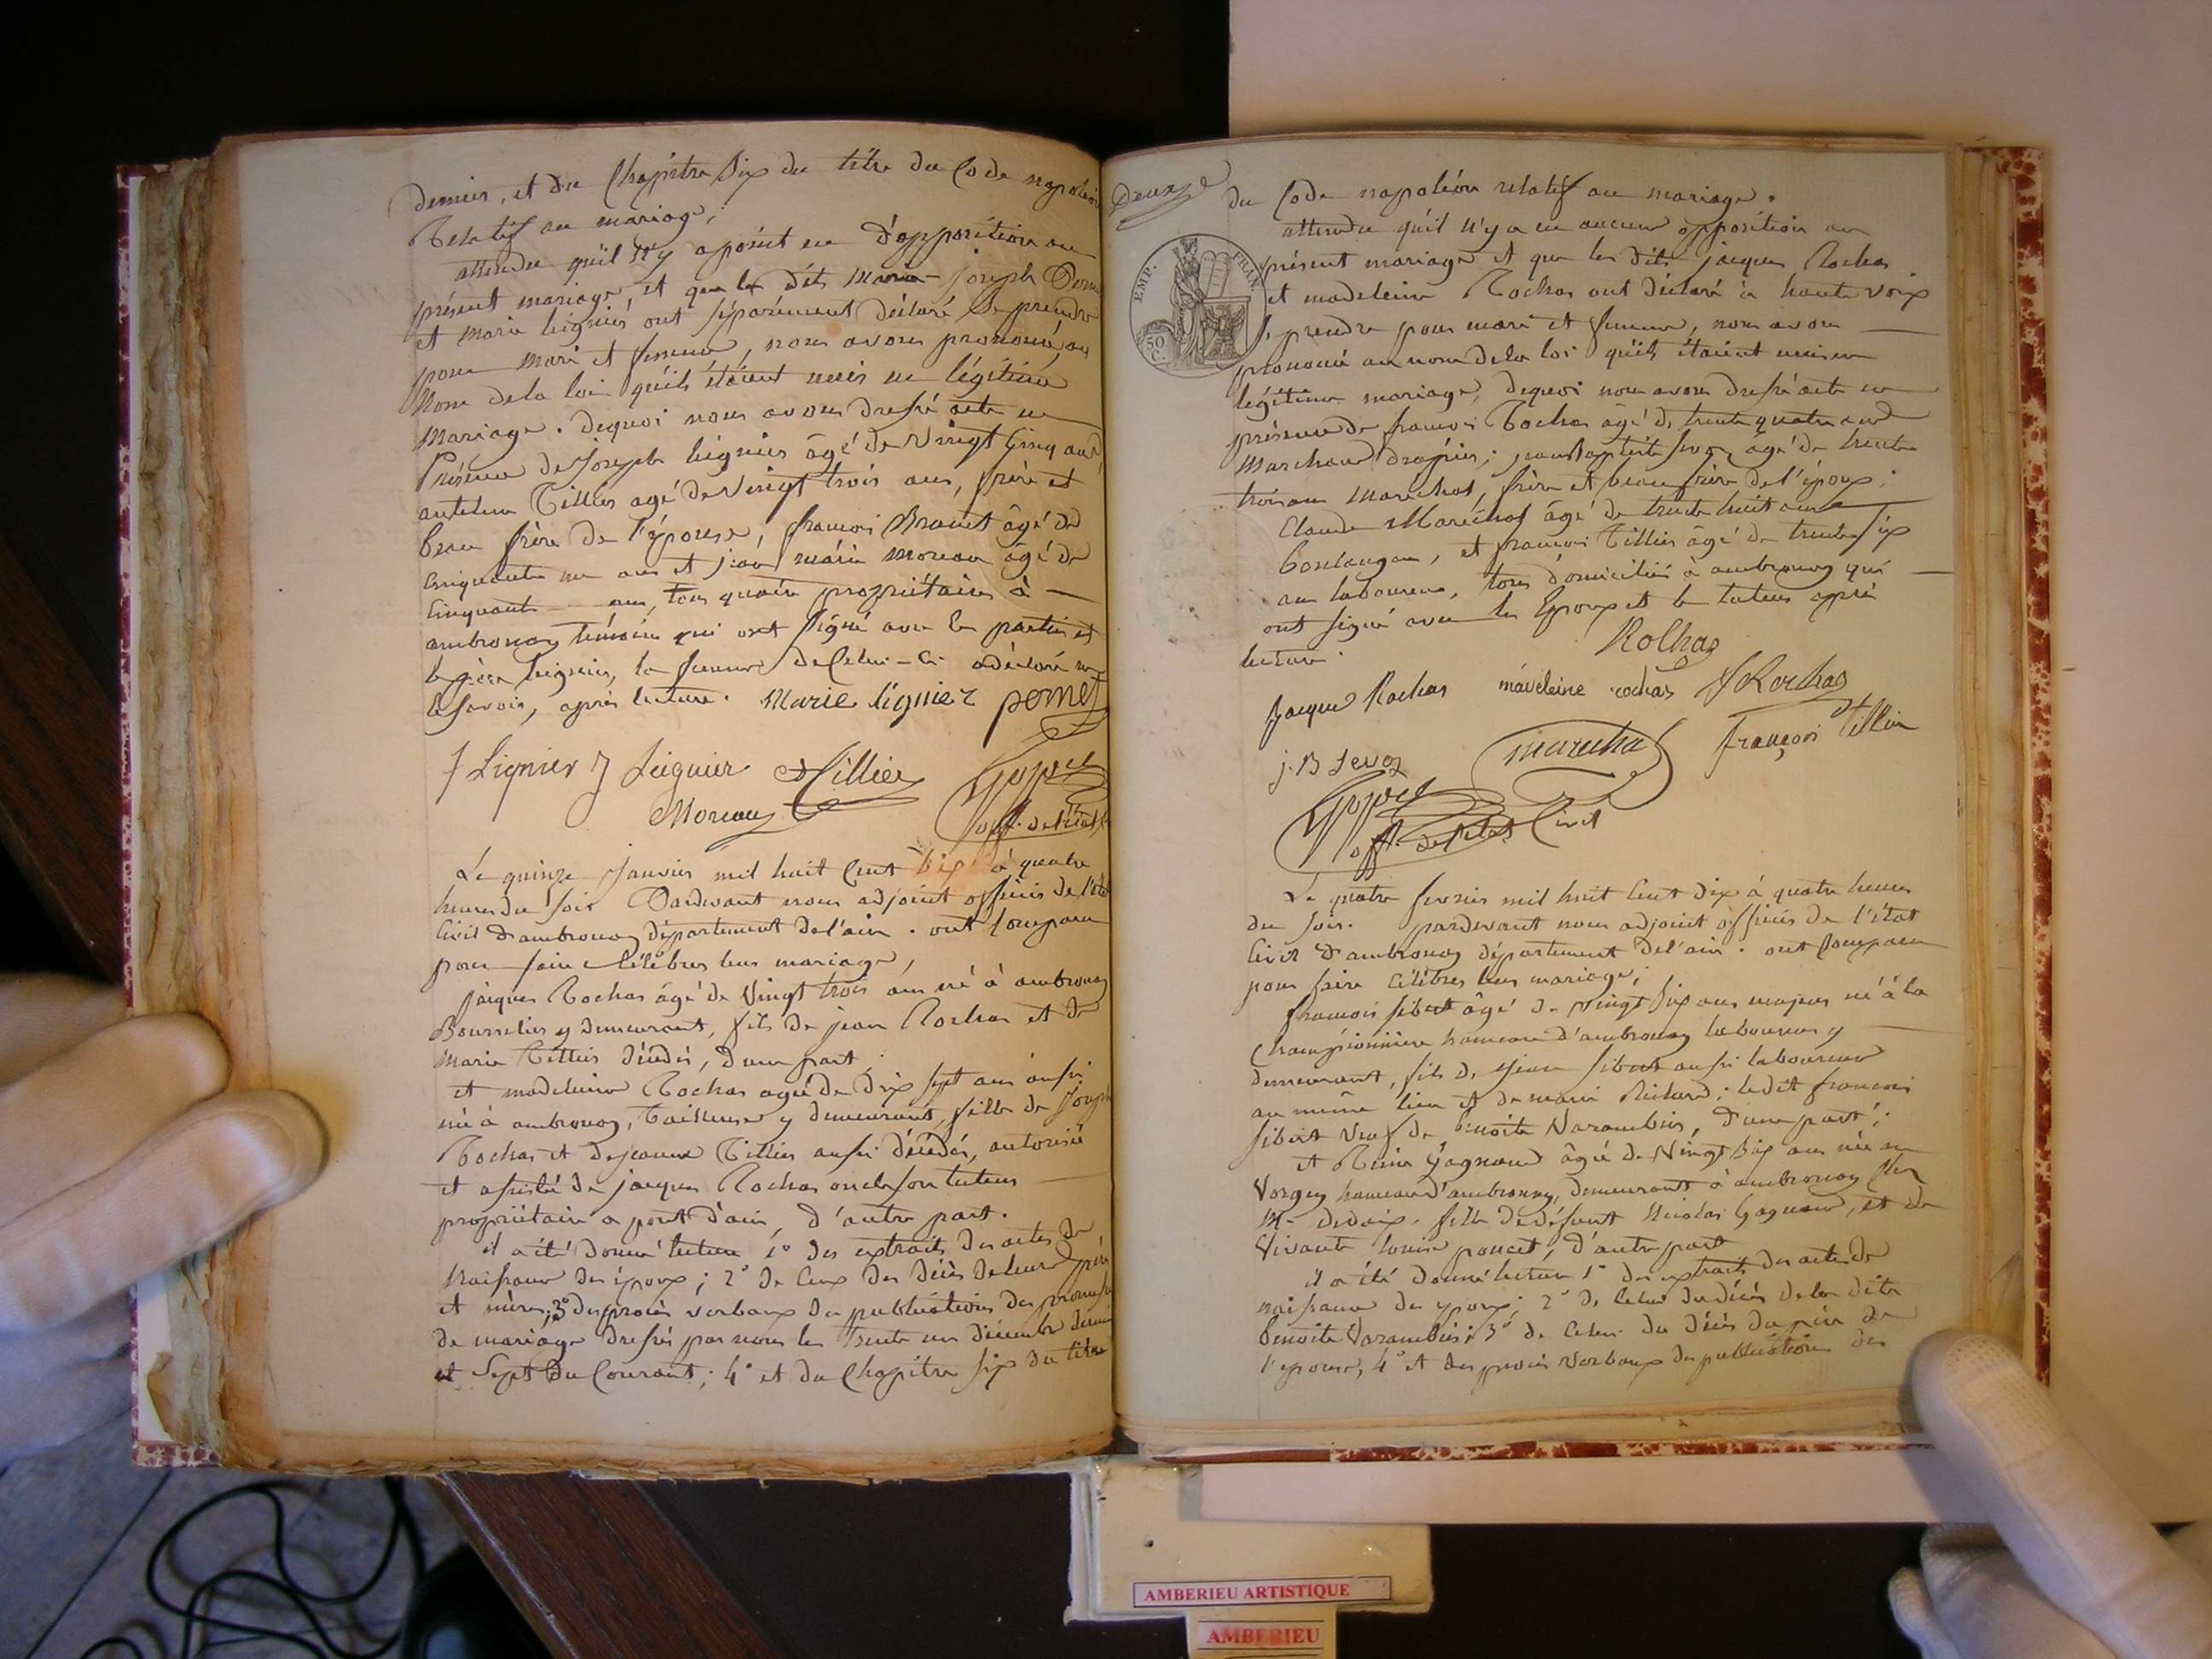 dernier, et du Chapitre Six du titre du Code napoléon
Relatif au mariage;
attendu qu'il n'y a point eu d'opposition au
présent mariage, et que les dits Marin-joseph
et marie lignier ont séparément déclaré se prendre
pour mari et femme, nous avons prononcé, au
Nom de la loi qu'ils étaient unis en légitime
mariage. dequoi nous avons dressé acte en
Présence de joseph lignier âgé de vingt cinq ans,
antelme Tillier agé de vingt trois ans, frère et
beau frère de l'épouse, francois Bruset âgé de
cinquante un ans et jean marie moreau âgé de
cinquante ans, tous quatre propriétaires à
ambronay témoins qui ont signé avec les parties et
le père lignier, la femme de Celui-ci a déclaré ne
le savoir, après lecture. Marie lignier pernet
f Lignier J Leignier A Tillier
Moreau
off. de l'état
Le quinze janvier mil huit Cent dix à quatre
heures du soir Pardevant nous adjoint officier de l'état
Civil d'ambronay département de l'ain. ont Comparu
pour faire Célébrer leur mariage,
jacques Rochas âgé de vingt trois ans né à ambronay
Bourrelier y demeurant, fils de jean Rochas et de
Marie Tillier décédés, d'une part;
et madeleine Rochas agée de dix sept ans aussi
née à ambronay, Tailleuse y demeurant, fille de joseph
Rochas et de jeanne Tillier aussi décédés, autorisée
et assistée de jacques Rochas oncle son tuteur
propriétaire a pont d'ain, d'autre part.
il a été donné lecture 1° des extraits des actes de
Naissance des époux; 2° de Ceux des décès de leurs pères
et mères; 3° des procès verbaux de publications des promesses
de mariage dressés par nous les trente un décembre dernier
et Sept du Courant; 4° et du Chapitre six du titre
Deuxe
du Code napoléon relatif au mariage.
attendu qu'il n'y a eu aucune opposition au
présent mariage et que les dits jacques Rochas
et madeleine Rochas ont déclaré à haute voix
se prendre pour mari et femme, nous avons
prononcé au nom de la loi qu'ils étaient unis en
légitime mariage, dequoi nous avons dressé acte en
présence de francois Rochas âgé de trente quatre ans
marchand drapier; jean Baptiste Sevoz âgé de trente
trois ans marechal, frère et beau frère de l'époux;
Claude Maréchal âgé de trente huit ans
boulanger, et francois Tillier âgé de trente six
ans laboureur, tous domiciliés à ambronay qui
ont signé avec les Epoux et le tuteur après
lecture.
Rolhas
Jacque Rochas madeleine rochas f Rochas
j. B Sevoz marechal françois tillier
off. de l'état Civil
EMP. FRAN.
50 C.
Le quatre fevrier mil huit Cent dix à quatre heures
du soir. pardevant nous adjoint officier de l'état
Civil d'ambronay département de l'ain. ont Comparu
pour faire Célébrer leur mariage;
francois sibert âgé de vingt six ans majeur né à la
Championnière hameau d'ambronay laboureur y
demeurant, fils de jean sibert aussi laboureur
au même lieu et de marie Richard; ledit francois
sibert veuf de benoite Varambier, d'une part;
et Reine Gagneur âgée de Vingt six ans née en
Vorgey hameau d'ambronay, demeurant à ambronay chez
Mr fille de défunt Nicolas Gagneur, et de
Vivante louise poncet, d'autre part
il a été donné lecture 1° des extraits des actes de
naissance des époux; 2° de Celui du décès de la dite
benoite Varambier; 3° de Celui du décès du père de
l'épouse, 4° et des procès verbaux de publications des
AMBERIEU ARTISTIQUE
AMBERIEU